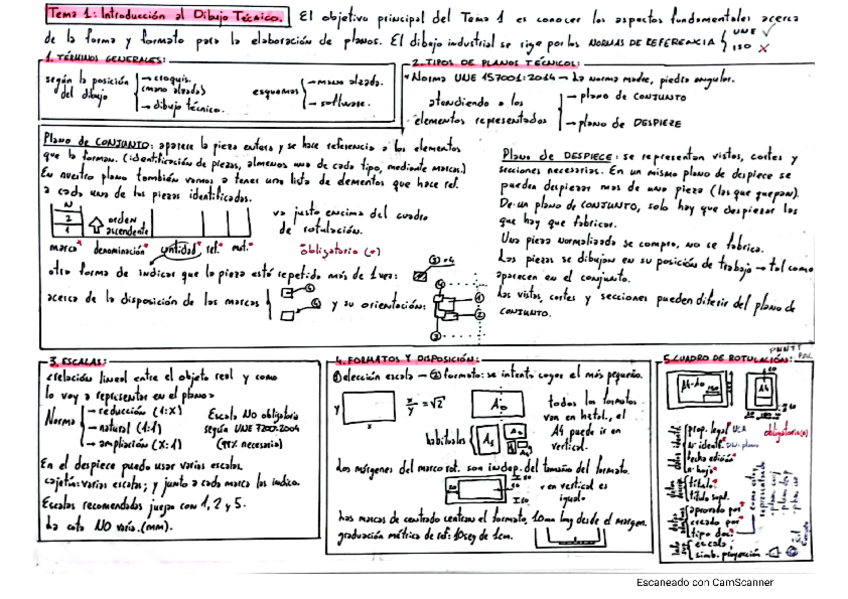 Tema 1: Introducción al Dibujo Técnico. El objetivo principal del Tema 1 es conocer los aspectos fundamentales acerca
de la forma y formato para la elaboración de planos. El dibujo industrial se rige por las NORMAS DE REFERENCIA UNE ✓
ISO ✗
1. TÉRMINOS GENERALES:
según la posición del dibujo
→ croquis. (mano alzada)
→ dibujo técnico.
esquemas
→ mano alzada.
→ software.
2. TIPOS DE PLANOS TÉCNICOS:
Norma UNE 157001:2014 → La norma madre, piedra angular.
atendiendo a los elementos representados
→ plano de CONJUNTO
→ plano de DESPIECE
Plano de CONJUNTO: aparece la pieza entera y se hace referencia a los elementos
que la forman. (identificación de piezas, almenos una de cada tipo, mediante marcas.)
En nuestro plano también vamos a tener una lista de elementos que hace ref.
a cada una de las piezas identificadas.
N
2
1
orden ascendente
va justo encima del cuadro
de rotulación.
marca* denominación* cantidad* ref.* mat.*
obligatorio (*)
otra forma de indicar que la pieza está repetida más de 1 vez:
acerca de la disposición de las marcas
y su orientación:
Plano de DESPIECE: se representan vistas, cortes y
secciones necesarias. En un mismo plano de despiece se
pueden despiezar mas de una pieza (las que quepan).
De un plano de CONJUNTO, solo hay que despiezar las
que hay que fabricar.
Una pieza normalizada se compra, no se fabrica.
Las piezas se dibujan en su posición de trabajo → tal como
aparecen en el conjunto.
Las vistas, cortes y secciones pueden diferir del plano de
CONJUNTO.
3. ESCALAS:
<relación lineal entre el objeto real y como
lo voy a representar en el plano>
Norma
→ reducción (1:X)
→ natural (1:1)
→ ampliación (X:1)
Escala NO obligatoria
según UNE
En el despiece puedo usar varias escalas.
cajetín: varias escalas; y junto a cada marca las indico.
Escalas recomendadas juega con 1, 2 y 5.
La cota NO varía. (mm).
4. FORMATOS Y DISPOSICIÓN:
① elección escala → ② formato: se intenta coger el más pequeño.
y
x
x/y = √2
A0
todos los formatos
van en hztal., el
A4 puede ir en
vertical.
habituales
A3
Los márgenes del marco rot. son indep. del tamaño del formato.
en vertical es
igual
Las marcas de centrado centran el formato, 10mm lng desde el margen.
graduación métrica de ref: 10seg de 1cm.
5. CUADRO DE ROTULACIÓN:
A4-A0
A4
obligatorio(*)
prop. legal*
nº identif.*
fecha edición*
nº hoja*
título*
título supl.
aprobado por*
creado por*
tipo doc.*
escala
simb. proyección
Escaneado con CamScanner